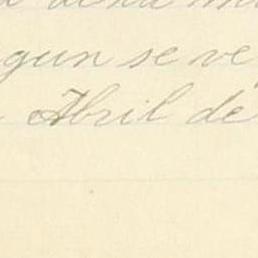 gun se ve
Abril de